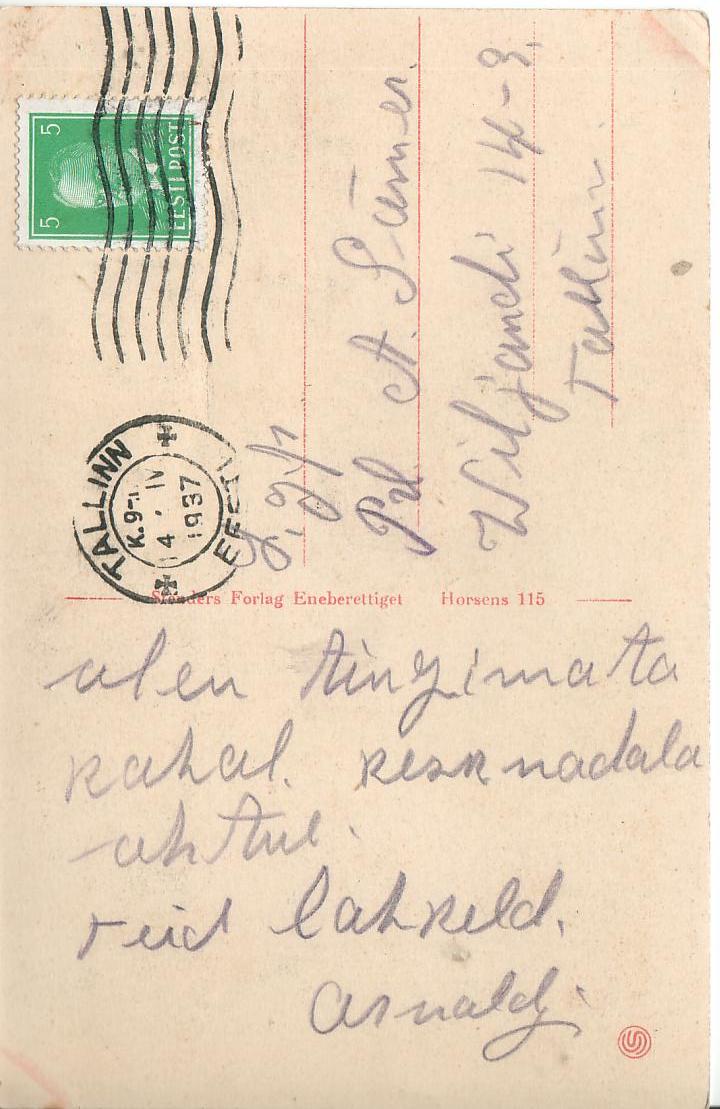 5 5
EESTI POST
TALLINN
K.9-
4 IV
1937
EESTI
Prl. A. Sümer.
Wiljandi 14-9.
Tallinn.
Stenders Forlag Eneberettiget Horsens 115
olen tingimata
kohal. kesknadala
ohtul.
teid lahkeld.
Arnold